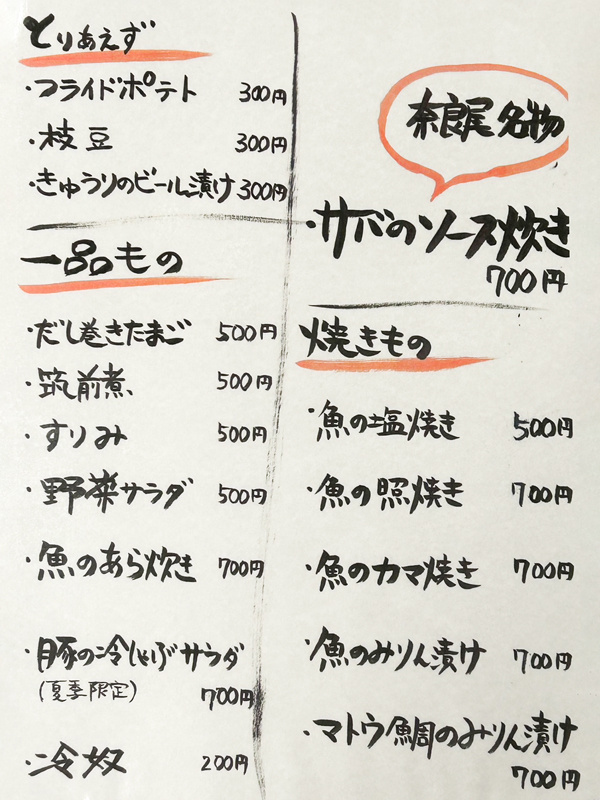 とりあえず
・フライドポテト 300円
・枝豆 300円
・きゅうりのビール漬け 300円
一品もの
・だし巻きたまご 500円
・筑前煮 500円
・すりみ 500円
・野菜サラダ 500円
・魚のあら炊き 700円
・豚の冷しゃぶサラダ
(夏季限定)
700円
・冷奴 200円
奈良尾名物
・サバのソース炊き
700円
焼きもの
・魚の塩焼き 500円
・魚の照焼き 700円
・魚のカマ焼き 700円
・魚のみりん漬け 700円
・マトウ鯛のみりん漬け
700円